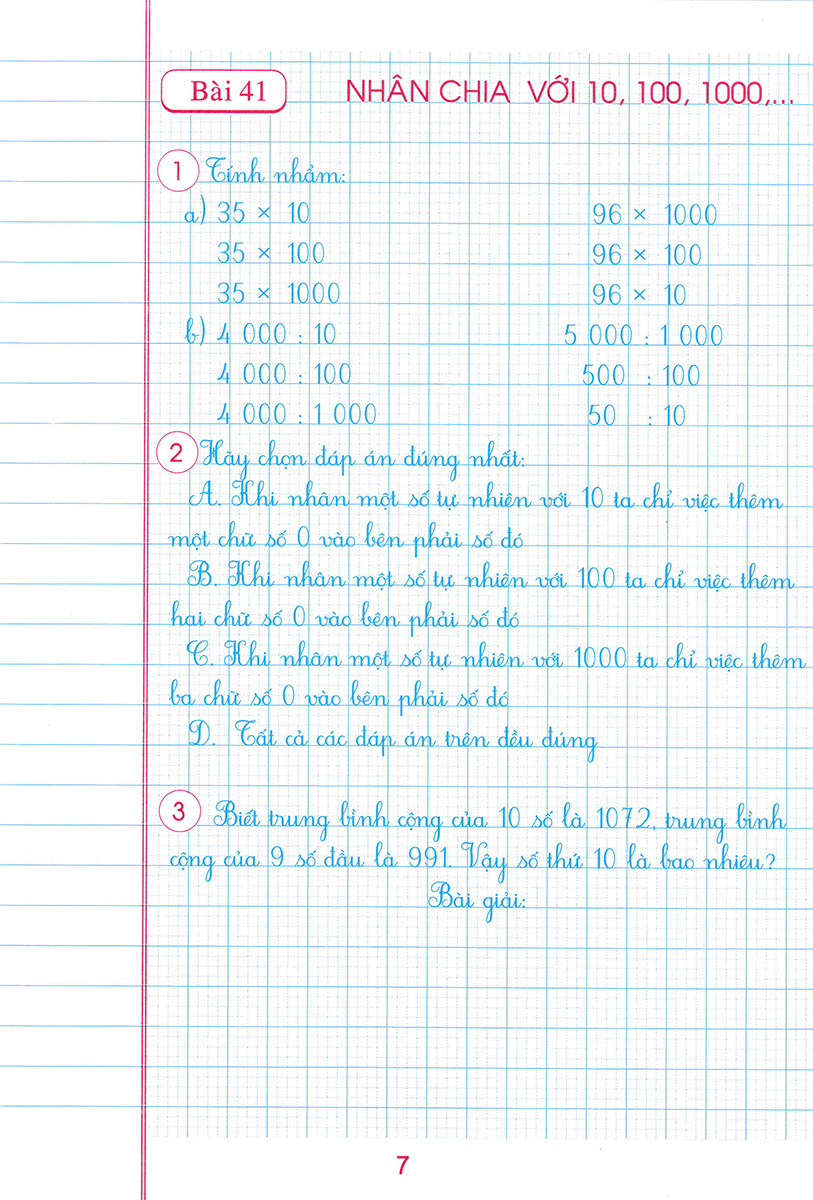 Bài 41 NHÂN CHIA VỚI 10, 100, 1000,...
1 Tính nhẩm:
a) 35 × 10 96 × 1000
35 × 100 96 × 100
35 × 1000 96 × 10
b) 4 000 : 10 5 000 : 1 000
4 000 : 100 500 : 100
4 000 : 1 000 50 : 10
2 Hãy chọn đáp án đúng nhất:
A. Khi nhân một số tự nhiên với 10 ta chỉ việc thêm
một chữ số 0 vào bên phải số đó
B. Khi nhân một số tự nhiên với 100 ta chỉ việc thêm
hai chữ số 0 vào bên phải số đó
C. Khi nhân một số tự nhiên với 1000 ta chỉ việc thêm
ba chữ số 0 vào bên phải số đó
D. Tất cả các đáp án trên đều đúng
3 Biết trung bình cộng của 10 số là 1072, trung bình
cộng của 9 số đầu là 991. Vậy số thứ 10 là bao nhiêu?
Bài giải:
7